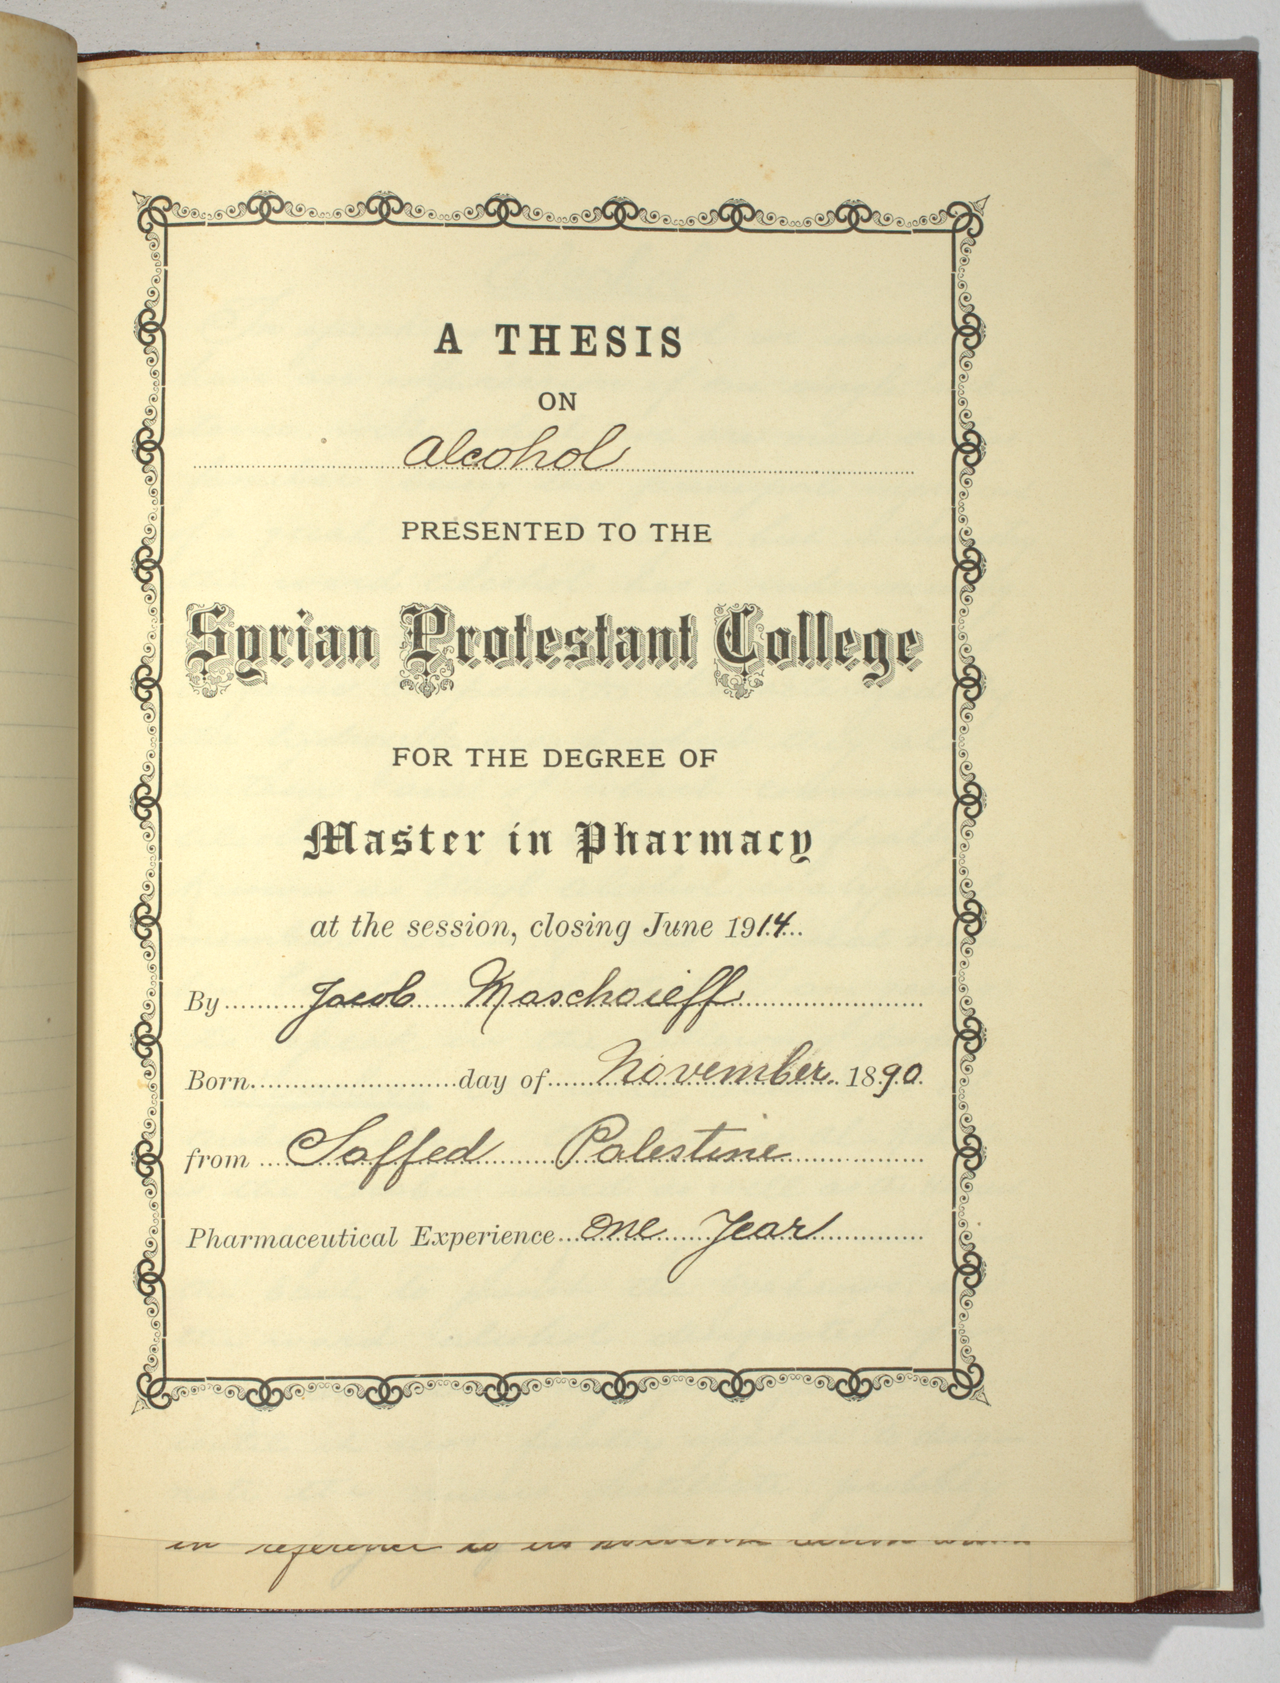 A THESIS
ON
Alcohol
PRESENTED TO THE
Syrian Protestant College
FOR THE DEGREE OF
Master in Pharmacy
at the session, closing June 1914
By Jacob Maschoieff
Born day of November 1890
from Saffed Palestine
Pharmaceutical Experience One Year
in reference to its